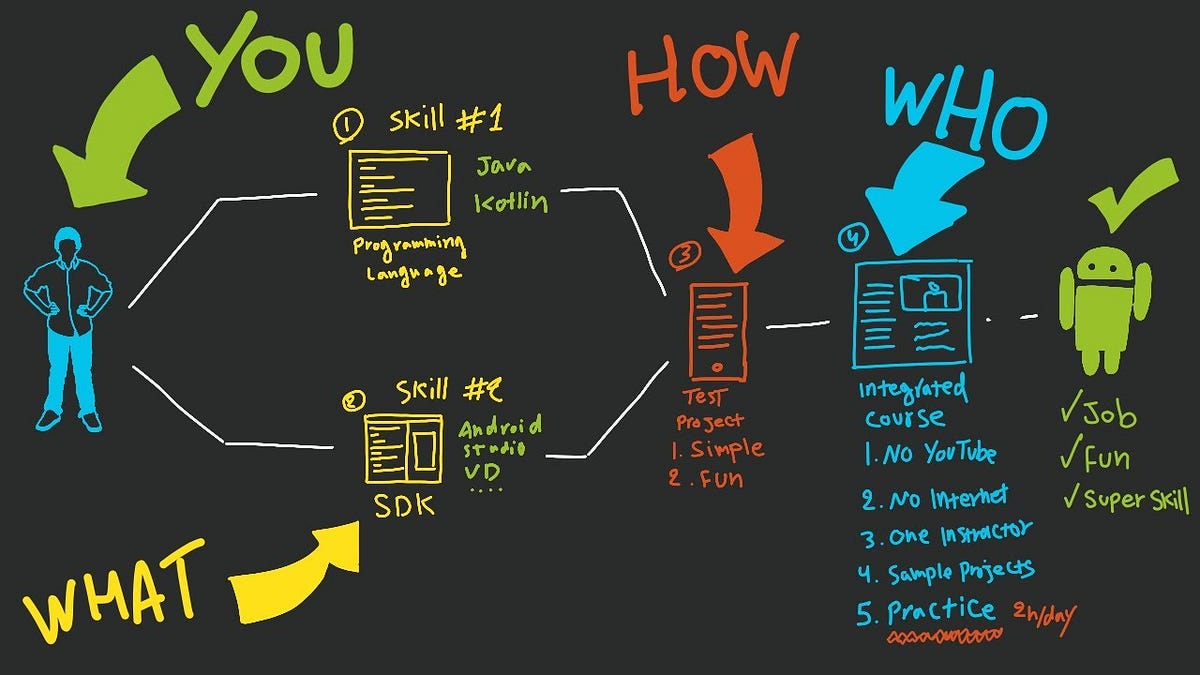 YOU
HOW
WHO
WHAT
1 Skill #1
Java
Kotlin
Programming
Language
2 Skill #2
Android
Studio
VD
....
SDK
3
Test
Project
1. Simple
2. Fun
4
Integrated
Course
1. No YouTube
2. No Internet
3. One Instractor
4. Sample Projects
5. Practice 2h/day
✓ Job
✓ Fun
✓ Super Skill